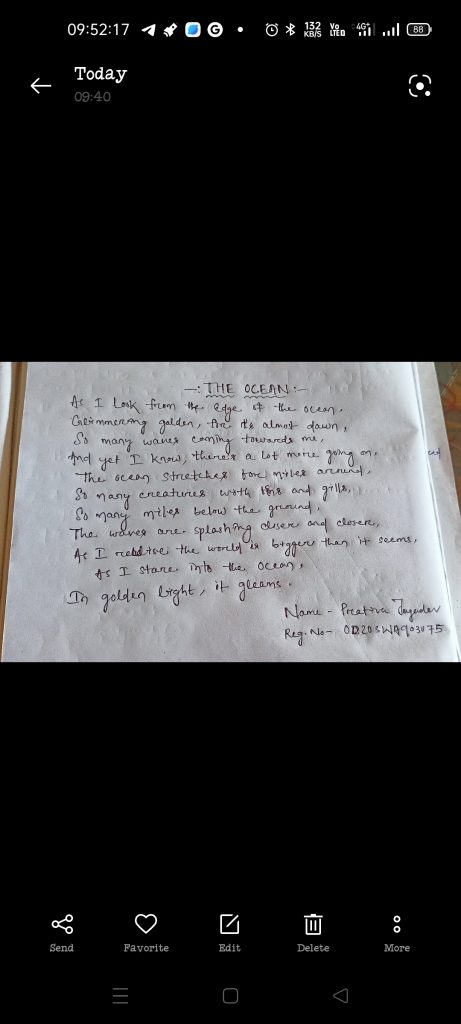 09:52:17
132 KB/S
Vo LTE
4G
88
Today
09:40
—: THE OCEAN :—
As I Look from the Edge of the ocean,
Glimmering golden, for it's almost dawn,
So many waves coming towards me,
And yet I know, there's a lot more going on,
The ocean stretches for miles around,
So many creatures with fins and gills,
So many miles below the ground,
The waves are splashing closer and closer,
As I realise the world is bigger than it seems,
As I stare into the ocean,
In golden light, it gleams.
Name -
Reg. No- OD20SWA903075
Send
Favorite
Edit
Delete
More